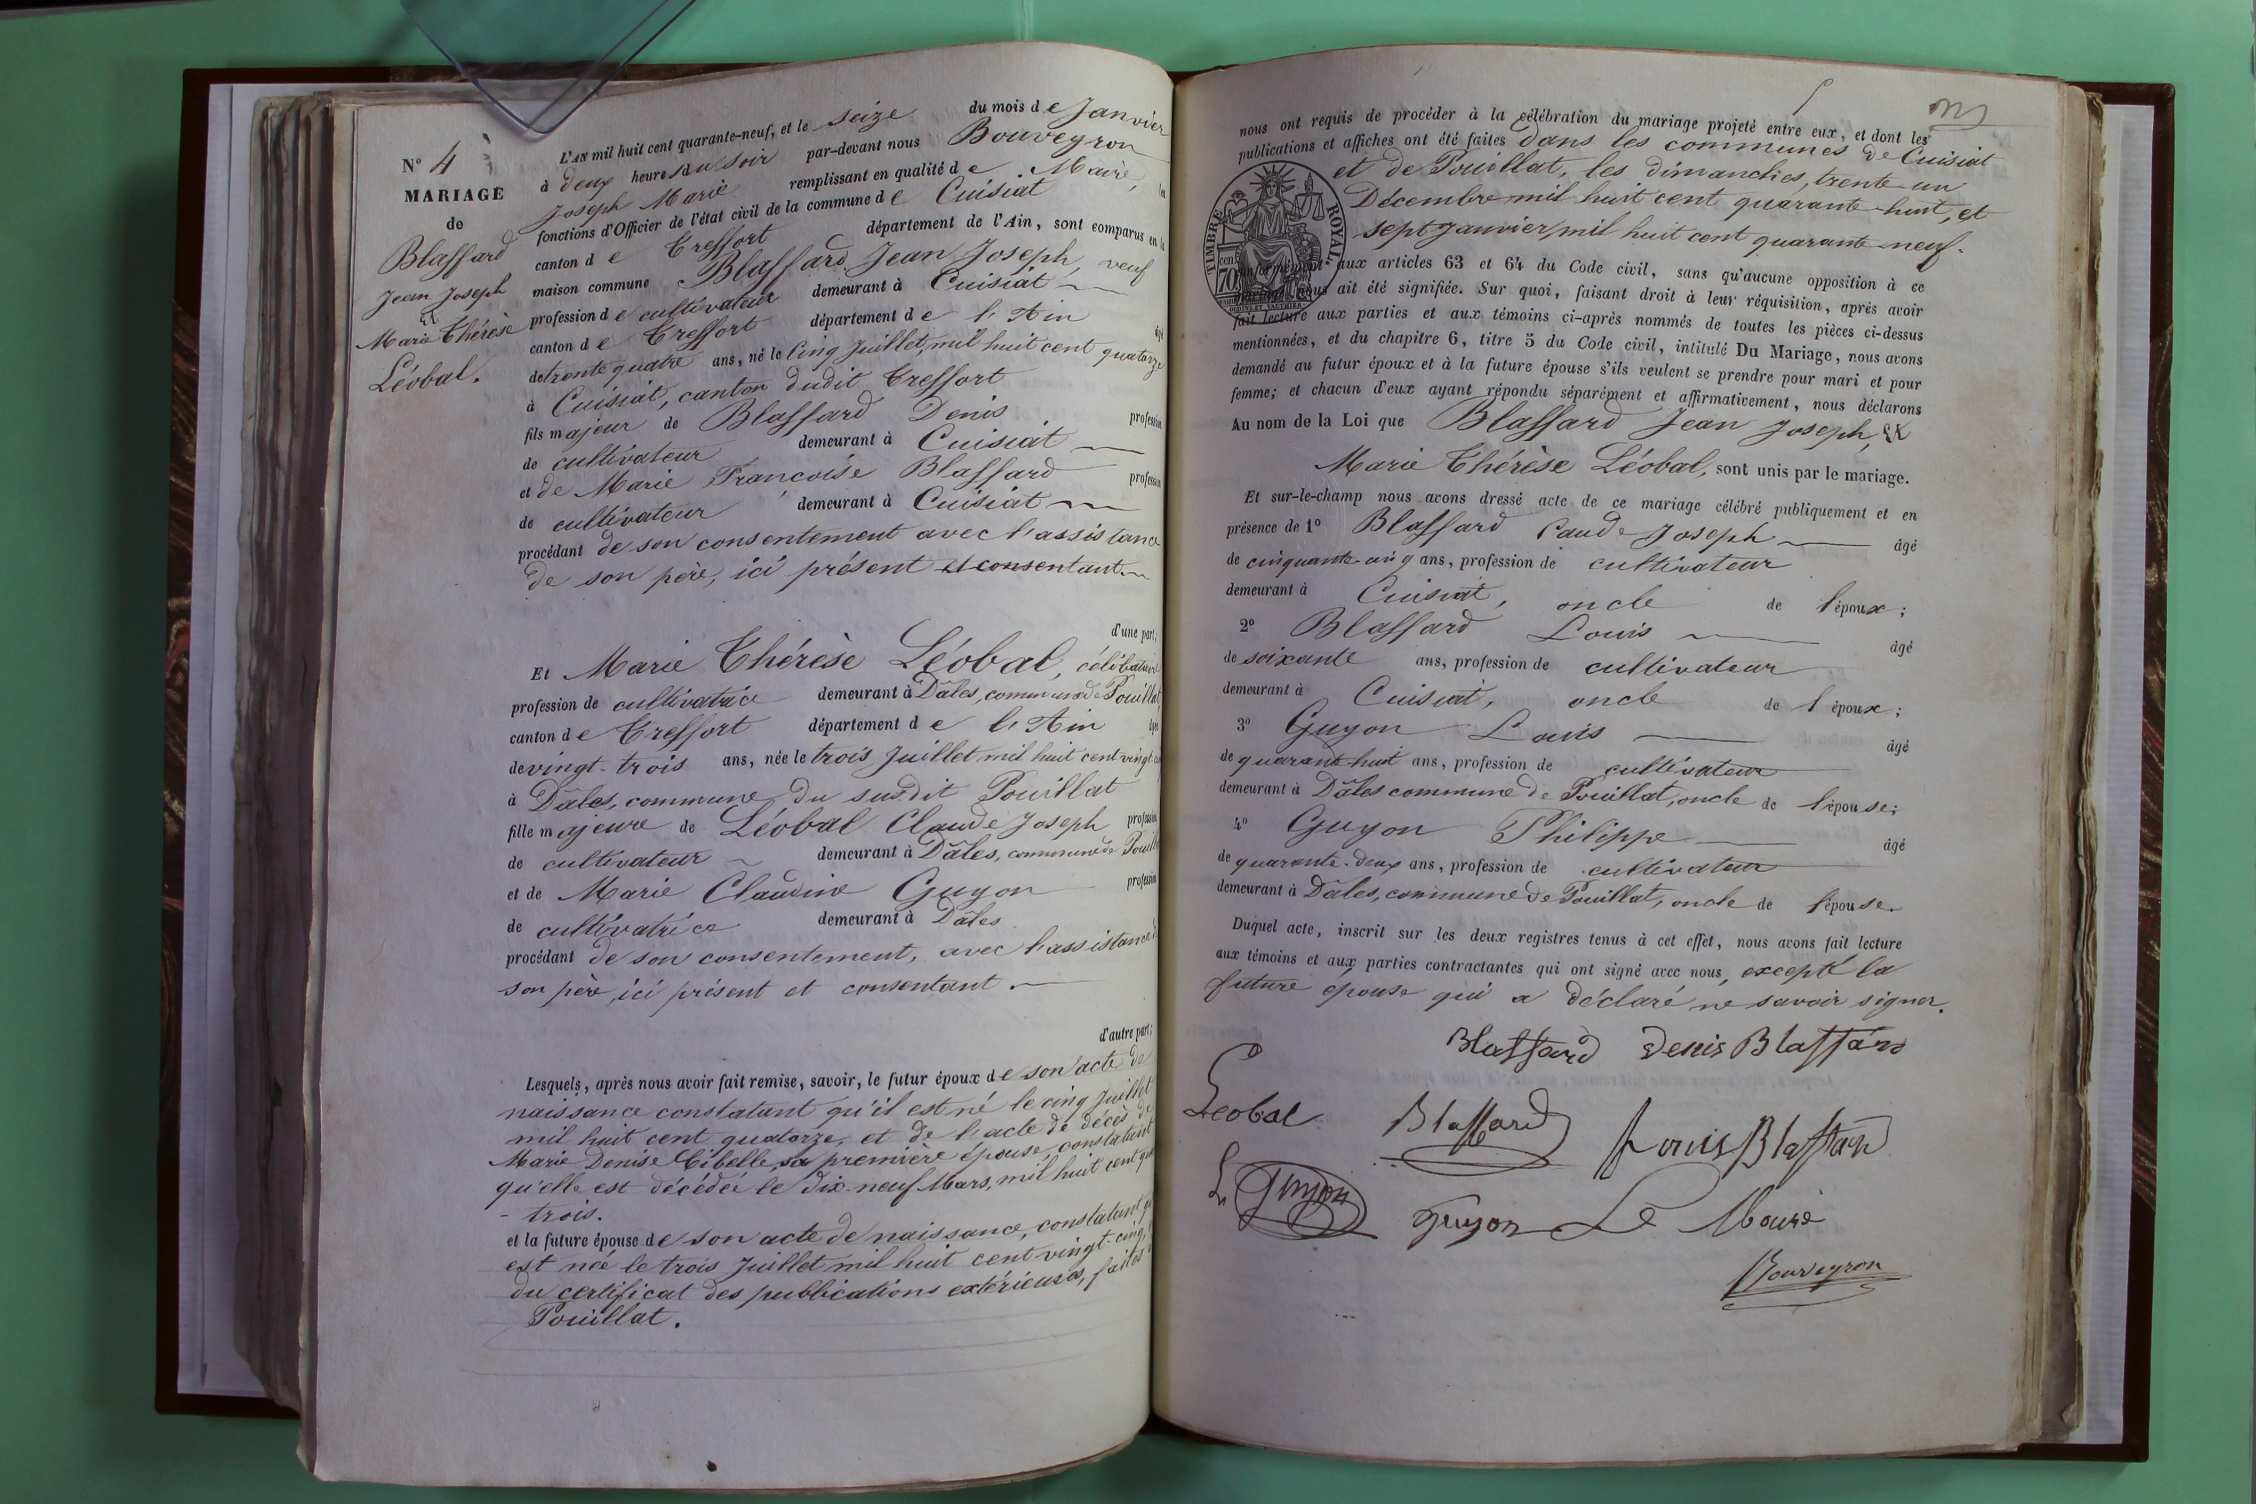 N° 4
MARIAGE
de
Blaffard
Jean Joseph
et
Marie Thérèse
Léobal.
L'AN mil huit cent quarante-neuf, et le seize du mois de Janvier
à deux heure du soir par-devant nous Bouveyron
Joseph Marie remplissant en qualité de Maire, les
fonctions d'Officier de l'état civil de la commune de Cuisiat
canton de Treffort département de l'Ain, sont comparus en la
maison commune Blaffard Jean Joseph, veuf
profession de cultivateur demeurant à Cuisiat
canton de Treffort département de l'Ain âgé
de trente quatre ans, né le cinq Juillet, mil huit cent quatorze
à Cuisiat, canton dudit Treffort
fils majeur de Blaffard Denis profession
de cultivateur demeurant à Cuisiat
et de Marie Françoise Blaffard profession
de cultivateur demeurant à Cuisiat
procédant de son consentement avec l'assistance
de son père, ici présent et consentant
d'une part;
Et Marie Thérèse Léobal, célibataire
profession de cultivatrice demeurant à Dâles, commune de Pouillat
canton de Treffort département de l'Ain âgée
de vingt-trois ans, née le trois Juillet mil huit cent vingt-
à Dâles, commune du susdit Pouillat
fille majeure de Léobal Claude Joseph profession
de cultivateur demeurant à Dâles, commune de Pouill
et de Marie Claudine Guyon profession
de cultivatrice demeurant à Dâles
procédant de son consentement, avec l'assistance d
son père, ici présent et consentant.
d'autre part;
Lesquels, après nous avoir fait remise, savoir, le futur époux de son acte de
naissance constatant qu'il est né le cinq Juillet
mil huit cent quatorze, et de l'acte de décès de
Marie Denise Cibelle, sa première épouse, constatant
qu'elle est décédée le dix-neuf Mars, mil huit cent qua
-trois.
et la future épouse de son acte de naissance, constatant qu
est née le trois Juillet mil huit cent vingt-cinq,
du certificat des publications extérieures, faites
Pouillat.
nous ont requis de procéder à la célébration du mariage projeté entre eux, et dont les
publications et affiches ont été faites dans les communes de Cuisiat
et de Pouillat, les dimanches, trente-un
Décembre mil huit cent quarante-huit, et
sept Janvier, mil huit cent quarante-neuf.
TIMBRE ROYAL
70 cent
conformément aux articles 63 et 64 du Code civil, sans qu'aucune opposition à ce
mariage nous ait été signifiée. Sur quoi, faisant droit à leur réquisition, après avoir
fait lecture aux parties et aux témoins ci-après nommés de toutes les pièces ci-dessus
mentionnées, et du chapitre 6, titre 5 du Code civil, intitulé Du Mariage, nous avons
demandé au futur époux et à la future épouse s'ils veulent se prendre pour mari et pour
femme; et chacun d'eux ayant répondu séparément et affirmativement, nous déclarons
Au nom de la Loi que Blaffard Jean Joseph, et
Marie Thérèse Léobal, sont unis par le mariage.
Et sur-le-champ nous avons dressé acte de ce mariage célébré publiquement et en
présence de 1° Blaffard Caude Joseph âgé
de cinquante-cinq ans, profession de cultivateur
demeurant à Cuisiat, oncle de l'époux;
2° Blaffard Louis âgé
de soixante ans, profession de cultivateur
demeurant à Cuisiat, oncle de l'époux;
3° Guyon Louis âgé
de quarante-huit ans, profession de cultivateur
demeurant à Dâles commune de Pouillat, oncle de l'épouse;
4° Guyon Philippe âgé
de quarante-deux ans, profession de cultivateur
demeurant à Dâles, commune de Pouillat, oncle de l'épouse.
Duquel acte, inscrit sur les deux registres tenus à cet effet, nous avons fait lecture
aux témoins et aux parties contractantes qui ont signé avec nous, excepté la
future épouse qui a déclaré ne savoir signer.
Blaffard Denis Blaffard
Leobal Blaffard Louis Blaffard
L Guyon Guyon Le Maire
Bouveyron